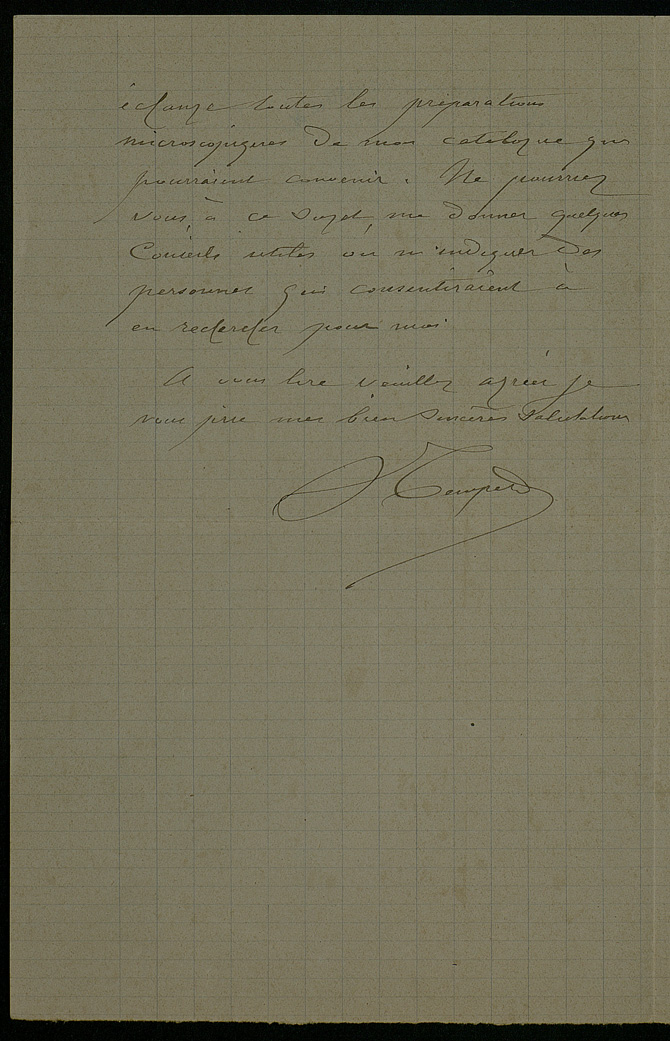 échange toutes les préparations
microscopiques de mon catalogue qui
pourraient convenir. Ne pourriez
vous, à ce sujet, me donner quelques
Conseils utiles ou m'indiquer des
personnes qui consentiraient à
en rechercher pour moi
A vous lire veuillez agréer je
vous prie mes bien sincères salutations
J Tempère